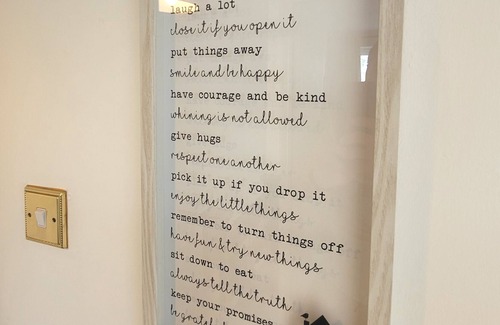 laugh a lot
close it if you open it
put things away
smile and be happy
have courage and be kind
whining is not allowed
give hugs
respect one another
pick it up if you drop it
enjoy the little things
remember to turn things off
have fun & try new things
sit down to eat
always tell the truth
keep your promises
be